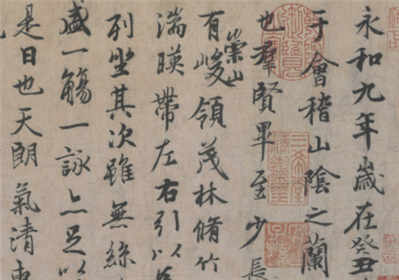 永和九年歲在癸丑
于會稽山陰之蘭
也羣賢畢至少長
有崇山峻領茂林脩竹
湍暎帶左右引以
列坐其次雖無絲
盛一觴一詠亦足以
是日也天朗氣清